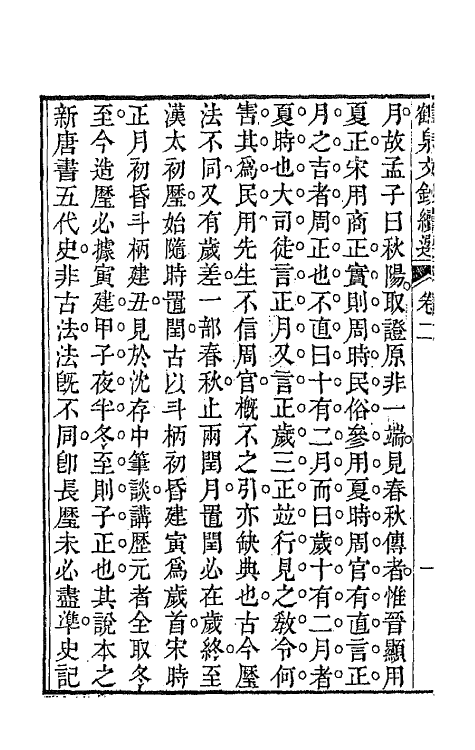 鶴泉文鈔續選 卷二 一
月故孟子曰秋陽取證原非一端見春秋傳者惟晉顯用
夏正宋用商正實則周時民俗參用夏時周官有直言正
月之吉者周正也不直曰十有二月而曰歲十有二月者
夏時也大司徒言正月又言正歲三正竝行見之敎令何
害其爲民用先生不信周官槪不之引亦缺典也古今歷
法不同又有歲差一部春秋止兩閏月置閏必在歲終至
漢太初歷始隨時置閏古以斗柄初昏建寅爲歲首宋時
正月初昏斗柄建丑見於沈存中筆談講歷元者全取冬
至今造歷必據寅建甲子夜半冬至則子正也其說本之
新唐書五代史非古法法旣不同卽長歷未必盡準史記